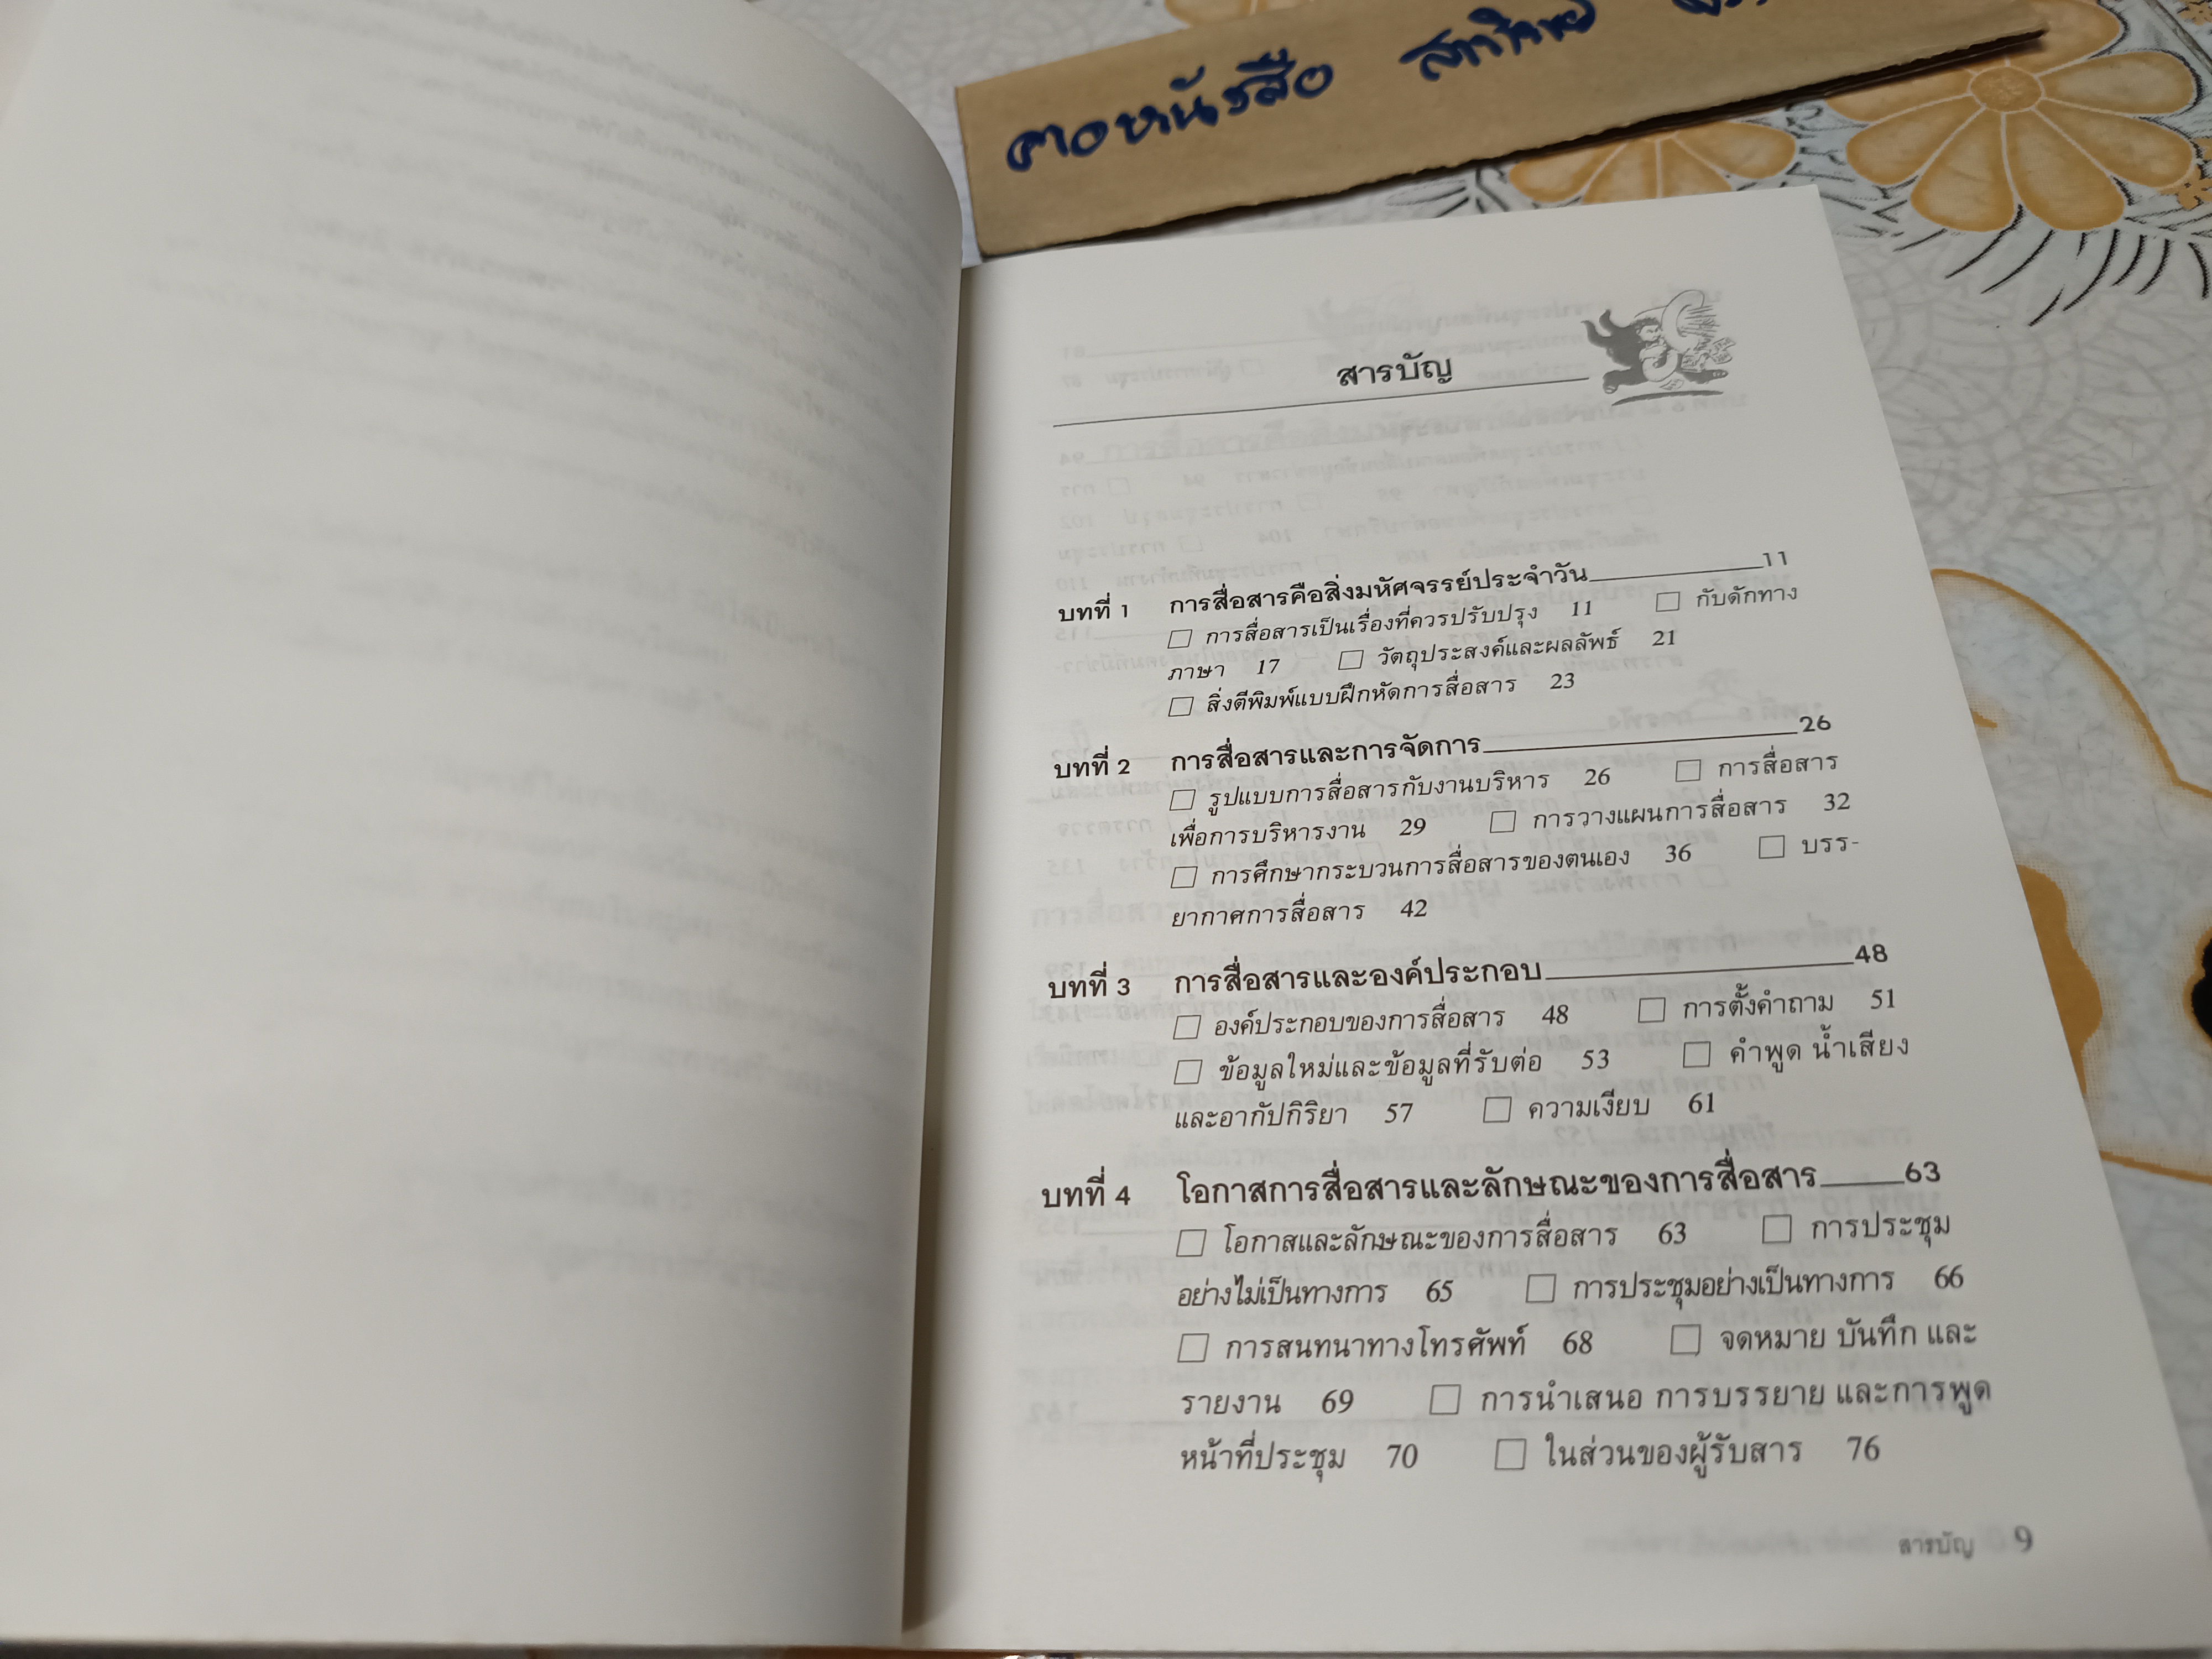 คอหนังสือ
สารบัญ
บทที่ 1 การสื่อสารคือสิ่งมหัศจรรย์ประจำวัน 11
การสื่อสารเป็นเรื่องที่ควรปรับปรุง 11 กับดักทาง
ภาษา 17 วัตถุประสงค์และผลลัพธ์ 21
สิ่งตีพิมพ์แบบฝึกหัดการสื่อสาร 23
บทที่ 2 การสื่อสารและการจัดการ 26
รูปแบบการสื่อสารกับงานบริหาร 26 การสื่อสาร
เพื่อการบริหารงาน 29 การวางแผนการสื่อสาร 32
การศึกษากระบวนการสื่อสารของตนเอง 36 บรร-
ยากาศการสื่อสาร 42
บทที่ 3 การสื่อสารและองค์ประกอบ 48
องค์ประกอบของการสื่อสาร 48 การตั้งคำถาม 51
ข้อมูลใหม่และข้อมูลที่รับต่อ 53 คำพูด น้ำเสียง
และอากัปกิริยา 57 ความเงียบ 61
บทที่ 4 โอกาสการสื่อสารและลักษณะของการสื่อสาร 63
โอกาสและลักษณะของการสื่อสาร 63 การประชุม
อย่างไม่เป็นทางการ 65 การประชุมอย่างเป็นทางการ 66
การสนทนาทางโทรศัพท์ 68 จดหมาย บันทึก และ
รายงาน 69 การนำเสนอ การบรรยาย และการพูด
หน้าที่ประชุม 70 ในส่วนของผู้รับสาร 76
สารบัญ 9